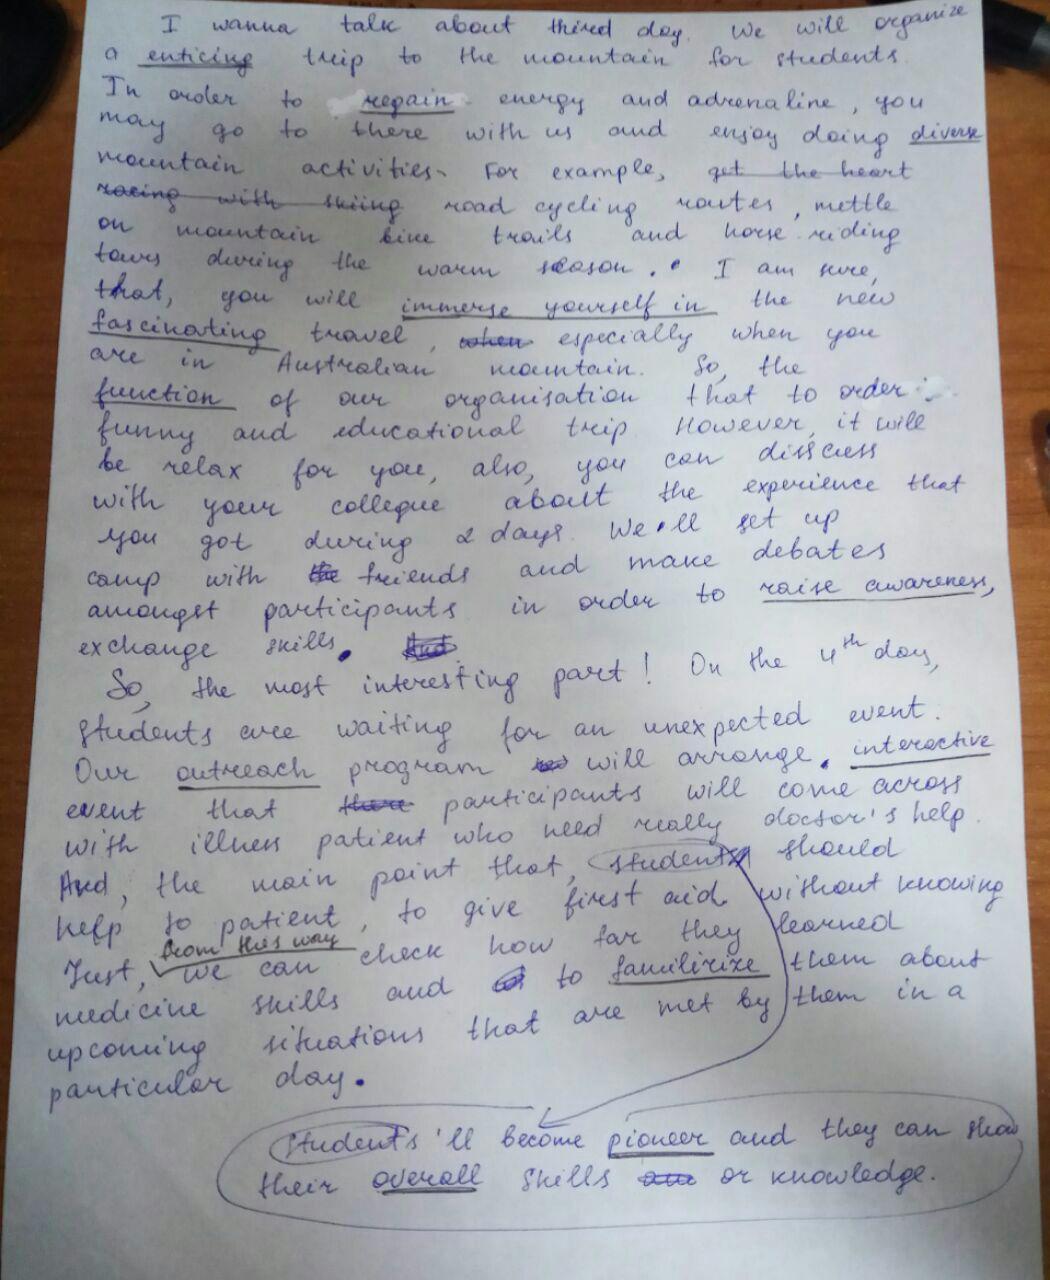 I wanna talk about third day. We will organize
a enticing trip to the mountain for students.
In order to regain energy and adrenaline, you
may go to there with us and enjoy doing diverse
mountain activities. For example, get the heart
racing with skiing road cycling routes, mettle
on mountain bike trails and horse riding
tours during the warm season. I am sure,
that, you will immerse yourself in the new
fascinating travel, when especially when you
are in Australian mountain. So, the
function of our organisation that to order
funny and educational trip. However, it will
be relax for you, also, you can disscuss
with your collegue about the experience that
you got during 2 days. We'll set up
camp with the friends and make debates
amongst participants in order to raise awareness,
exchange skills.
So, the most interesting part! On the 4th day,
students are waiting for an unexpected event.
Our outreach program will arrange interactive
event that there participants will come across
with illness patient who need really doctor's help.
And, the main point that, students should
help to patient, to give first aid without knowing
from this way
Just, we can check how far they learned
medicine skills and to familirize them about
upcoming situations that are met by them in a
particular day.
Students'll become pioneer and they can show
their overall skills or knowledge.